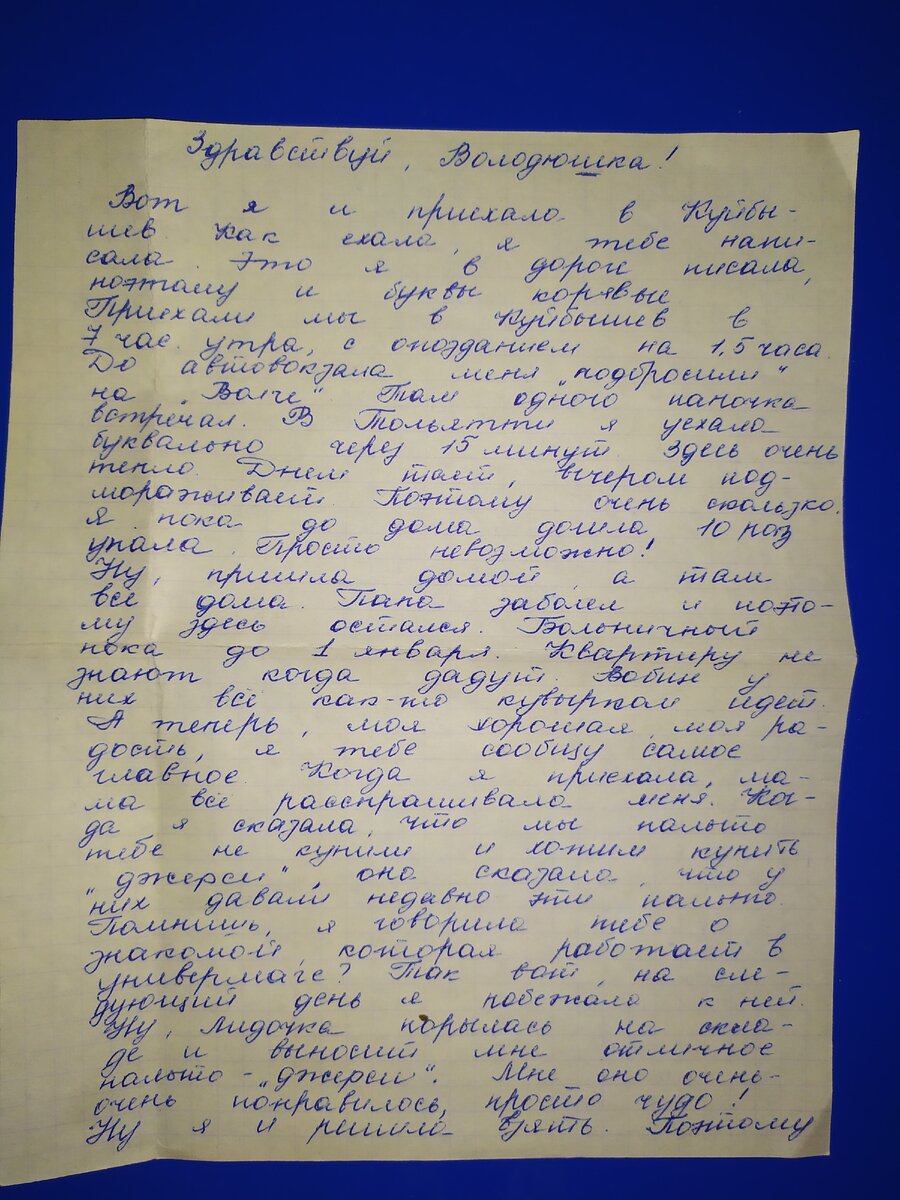 Здравствуй, Володюшка!
Вот я и приехала в Куйбы-
шев. Как ехала, я тебе напи-
сала. Это я в дороге писала,
поэтому и буквы корявые
Приехали мы в Куйбышев в
7 час. утра, с опозданием на 1,5 часа.
До автовокзала меня „подбросили"
на „Волге". Там одного папочка
встречал. В Тольятти я уехала
буквально через 15 минут. Здесь очень
тепло. Днем тает, вечером под-
мораживает. Поэтому очень скользко.
Я пока до дома дошла 10 раз
упала. Просто невозможно!
Ну, пришла домой, а там
все дома. Папа заболел и поэто-
му здесь остался. Больничный
пока до 1 января. Квартиру не
знают когда дадут. Вобщ у
них всё как-то кувырком идет.
А теперь, моя хорошая, моя ра-
дость, я тебе сообщу самое
главное. Когда я приехала, ма-
ма всё расспрашивала меня. Ког-
да я сказала, что мы пальто
тебе не купили и хотим купить
„джерси", она сказала, что у
них давали недавно эти пальто.
Помнишь, я говорила тебе о
знакомой, которая работает в
универмаге? Так вот, на сле-
дующий день я побежала к ней.
Ну, Лидочка порылась на скла-
де и выносит мне отличное
пальто - „джерси". Мне оно очень-
очень понравилось, просто чудо!
Ну я и решила взять. Поэтому